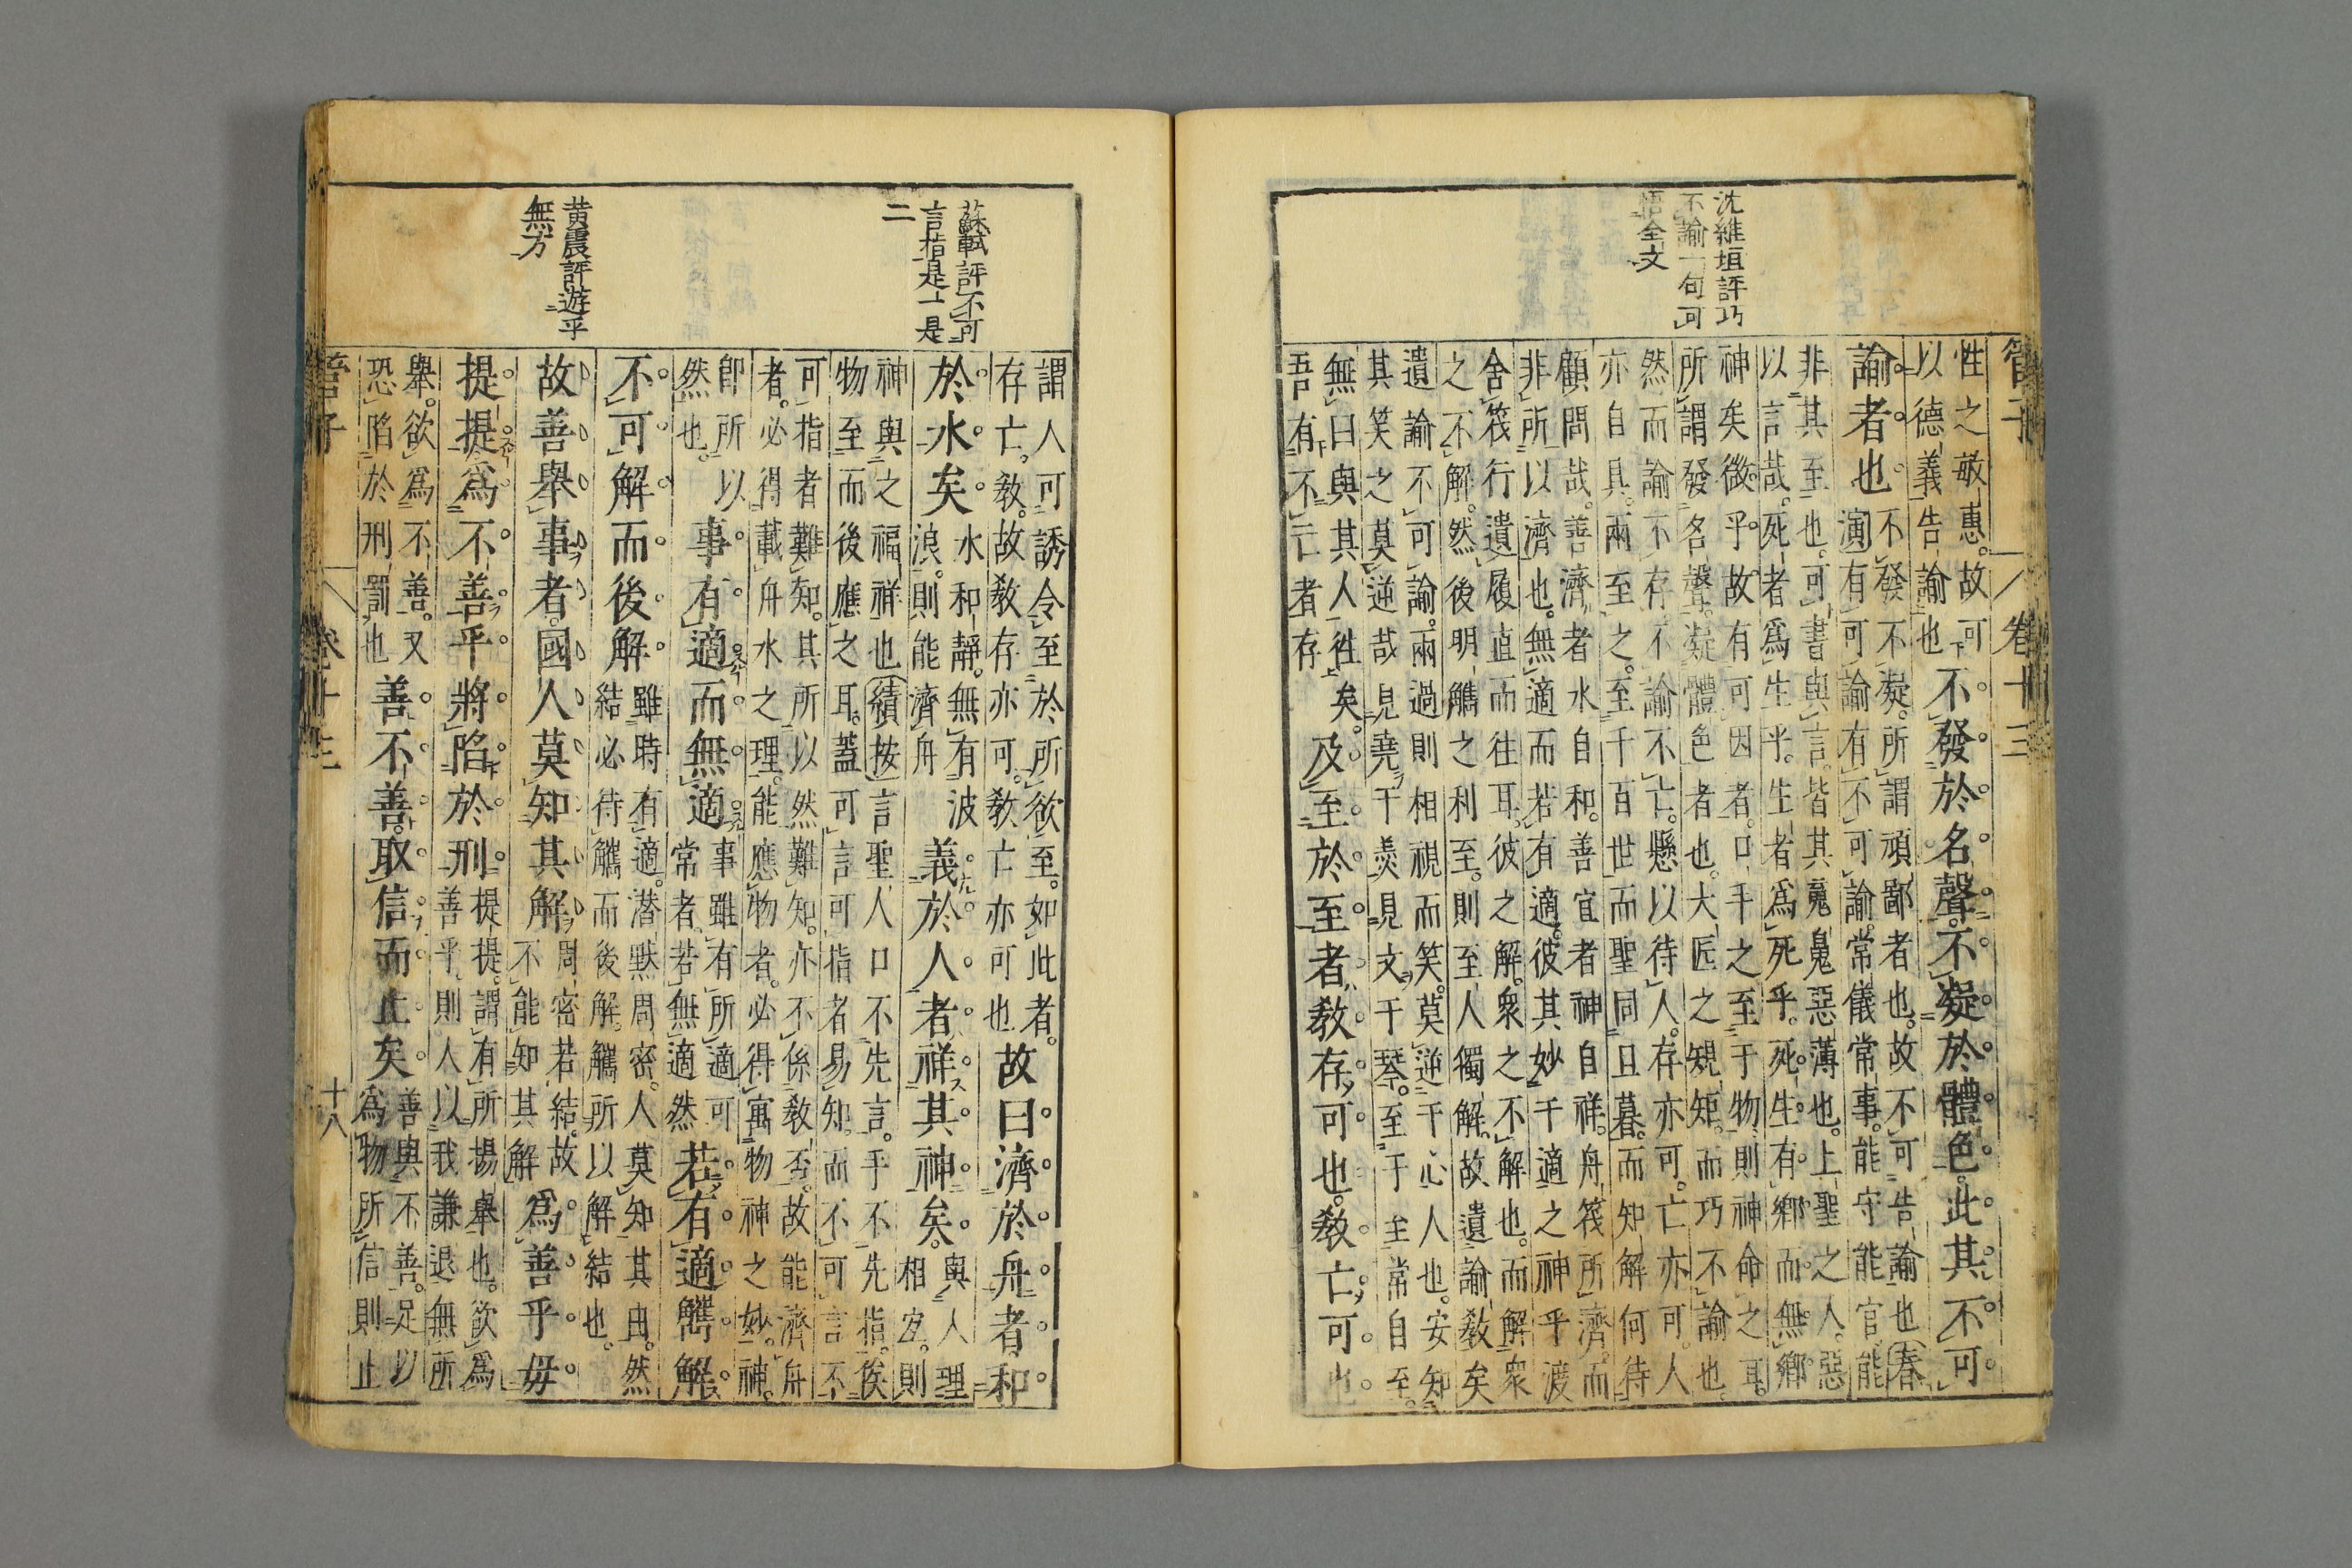 管子
卷十三
沈維垣評巧
不諭一句可
悟全文
性之敏惠故可
以德義告諭也
不發於名聲不凝於體色此其不可
諭者也
不發不凝所謂頑鄙者也故不可告諭也春
演有可諭有不可諭常儀常事能守能官能
非其至也可書與言皆其魄惡薄也上聖之人惡
以言哉死者爲生乎生者爲死乎死生有鄉而無鄉
神矣微乎故有可因者口手之至于物則神命之耳
所謂發名聲凝體色者也大匠之規矩而巧不諭也
然而諭不存不諭不亡懸以待人存亦可亡亦可人
亦自具兩至之至千百世而聖同旦暮而知解何待
顧問哉善濟者水自和善宜者神自祥舟筏所濟而
非所以濟也無適而若有適彼其妙于適之神乎渡
舍筏行遺履直而往耳彼之解衆之不解也而解衆
之不解然後明觿之利至則至人獨解故遺諭敎矣
遺諭不可諭兩過則相視而笑莫逆于心人也安知
其笑之莫逆哉見堯于羹見文于琴至于至常自至
無曰與其人往矣
吾有不亡者存
及至於至者敎存可也敎亡可也
蘇軾評不可
言指是一是
二
黃震評遊乎
無方
謂人可誘令至於所欲至如此者
存亡敎故敎存亦可敎亡亦可也
故曰濟於舟者和
於水矣
水和靜無有波
浪則能濟舟
義於人者祥其神矣
與人理
相宜則
神與之福祥也績按言聖人口不先言手不先指俟
物至而後應之耳蓋可言可指者易知而不可言不
可指者難知其所以然難知亦不係敎否故能濟舟
者必得載舟水之理能應物者必得寓物神之妙神
卽所以
然也
事有適而無適
事雖有所適可
常者若無適然
若有適觿解
不可解而後解
雖時有適潛默周密人莫知其由然
結必待觿而後解觿所以解結也
故善舉事者國人莫知其解
周密若結故
不能知其解
爲善乎毋
提提爲不善乎將陷於刑
提提謂有所揚舉也欲爲
善乎則人以我謙退無所
舉欲爲不善又
恐陷於刑罰也
善不善取信而止矣
善與不善足以
爲物所信則止
管子
卷十三
十八